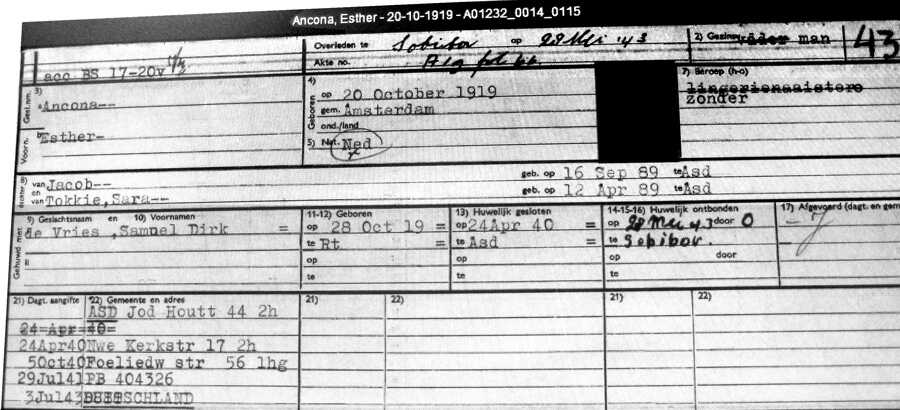 Ancona, Esther - 20-10-1919 - A01232_0014_0115
Overleden te Sobibor op 28 Mei '43
2) Gezins man
43
acc BS 17-20v
Akte no.
3)
Gesl.nm.
Ancona--
4)
Geboren
op 20 October 1919
gem. Amsterdam
ond./land
7) Beroep (h-o)
lingerienaaistere
zonder
Voorn.
Esther-
5) Nat. Ned
8)
van Jacob-- geb. op 16 Sep 89 te Asd
en
van Tokkie, Sara-- geb. op 12 Apr 89 te Asd
Gehuwd met
9) Geslachtsnaam en 10) Voornamen
de Vries ,Samuel Dirk =
11-12) Geboren
op 28 Oct 19 =
te Rt =
op
te
13) Huwelijk gesloten
op 24Apr 40 =
te Asd =
op
te
14-15-16) Huwelijk ontbonden
op 28 Mei 43 door O
te Sobibor.
op door
te
17) Afgevoerd (dagt. en gem
21) Dagt. aangifte 22) Gemeente en adres
21) 22) 21) 22)
ASD Jod Houtt 44 2h
24-Apr-40=
24Apr40 Nwe Kerkstr 17 2h
5Oct40 Foeliedw str 56 1hg
29Jul41 PB 404326
3Jul43 DUITSCHLAND